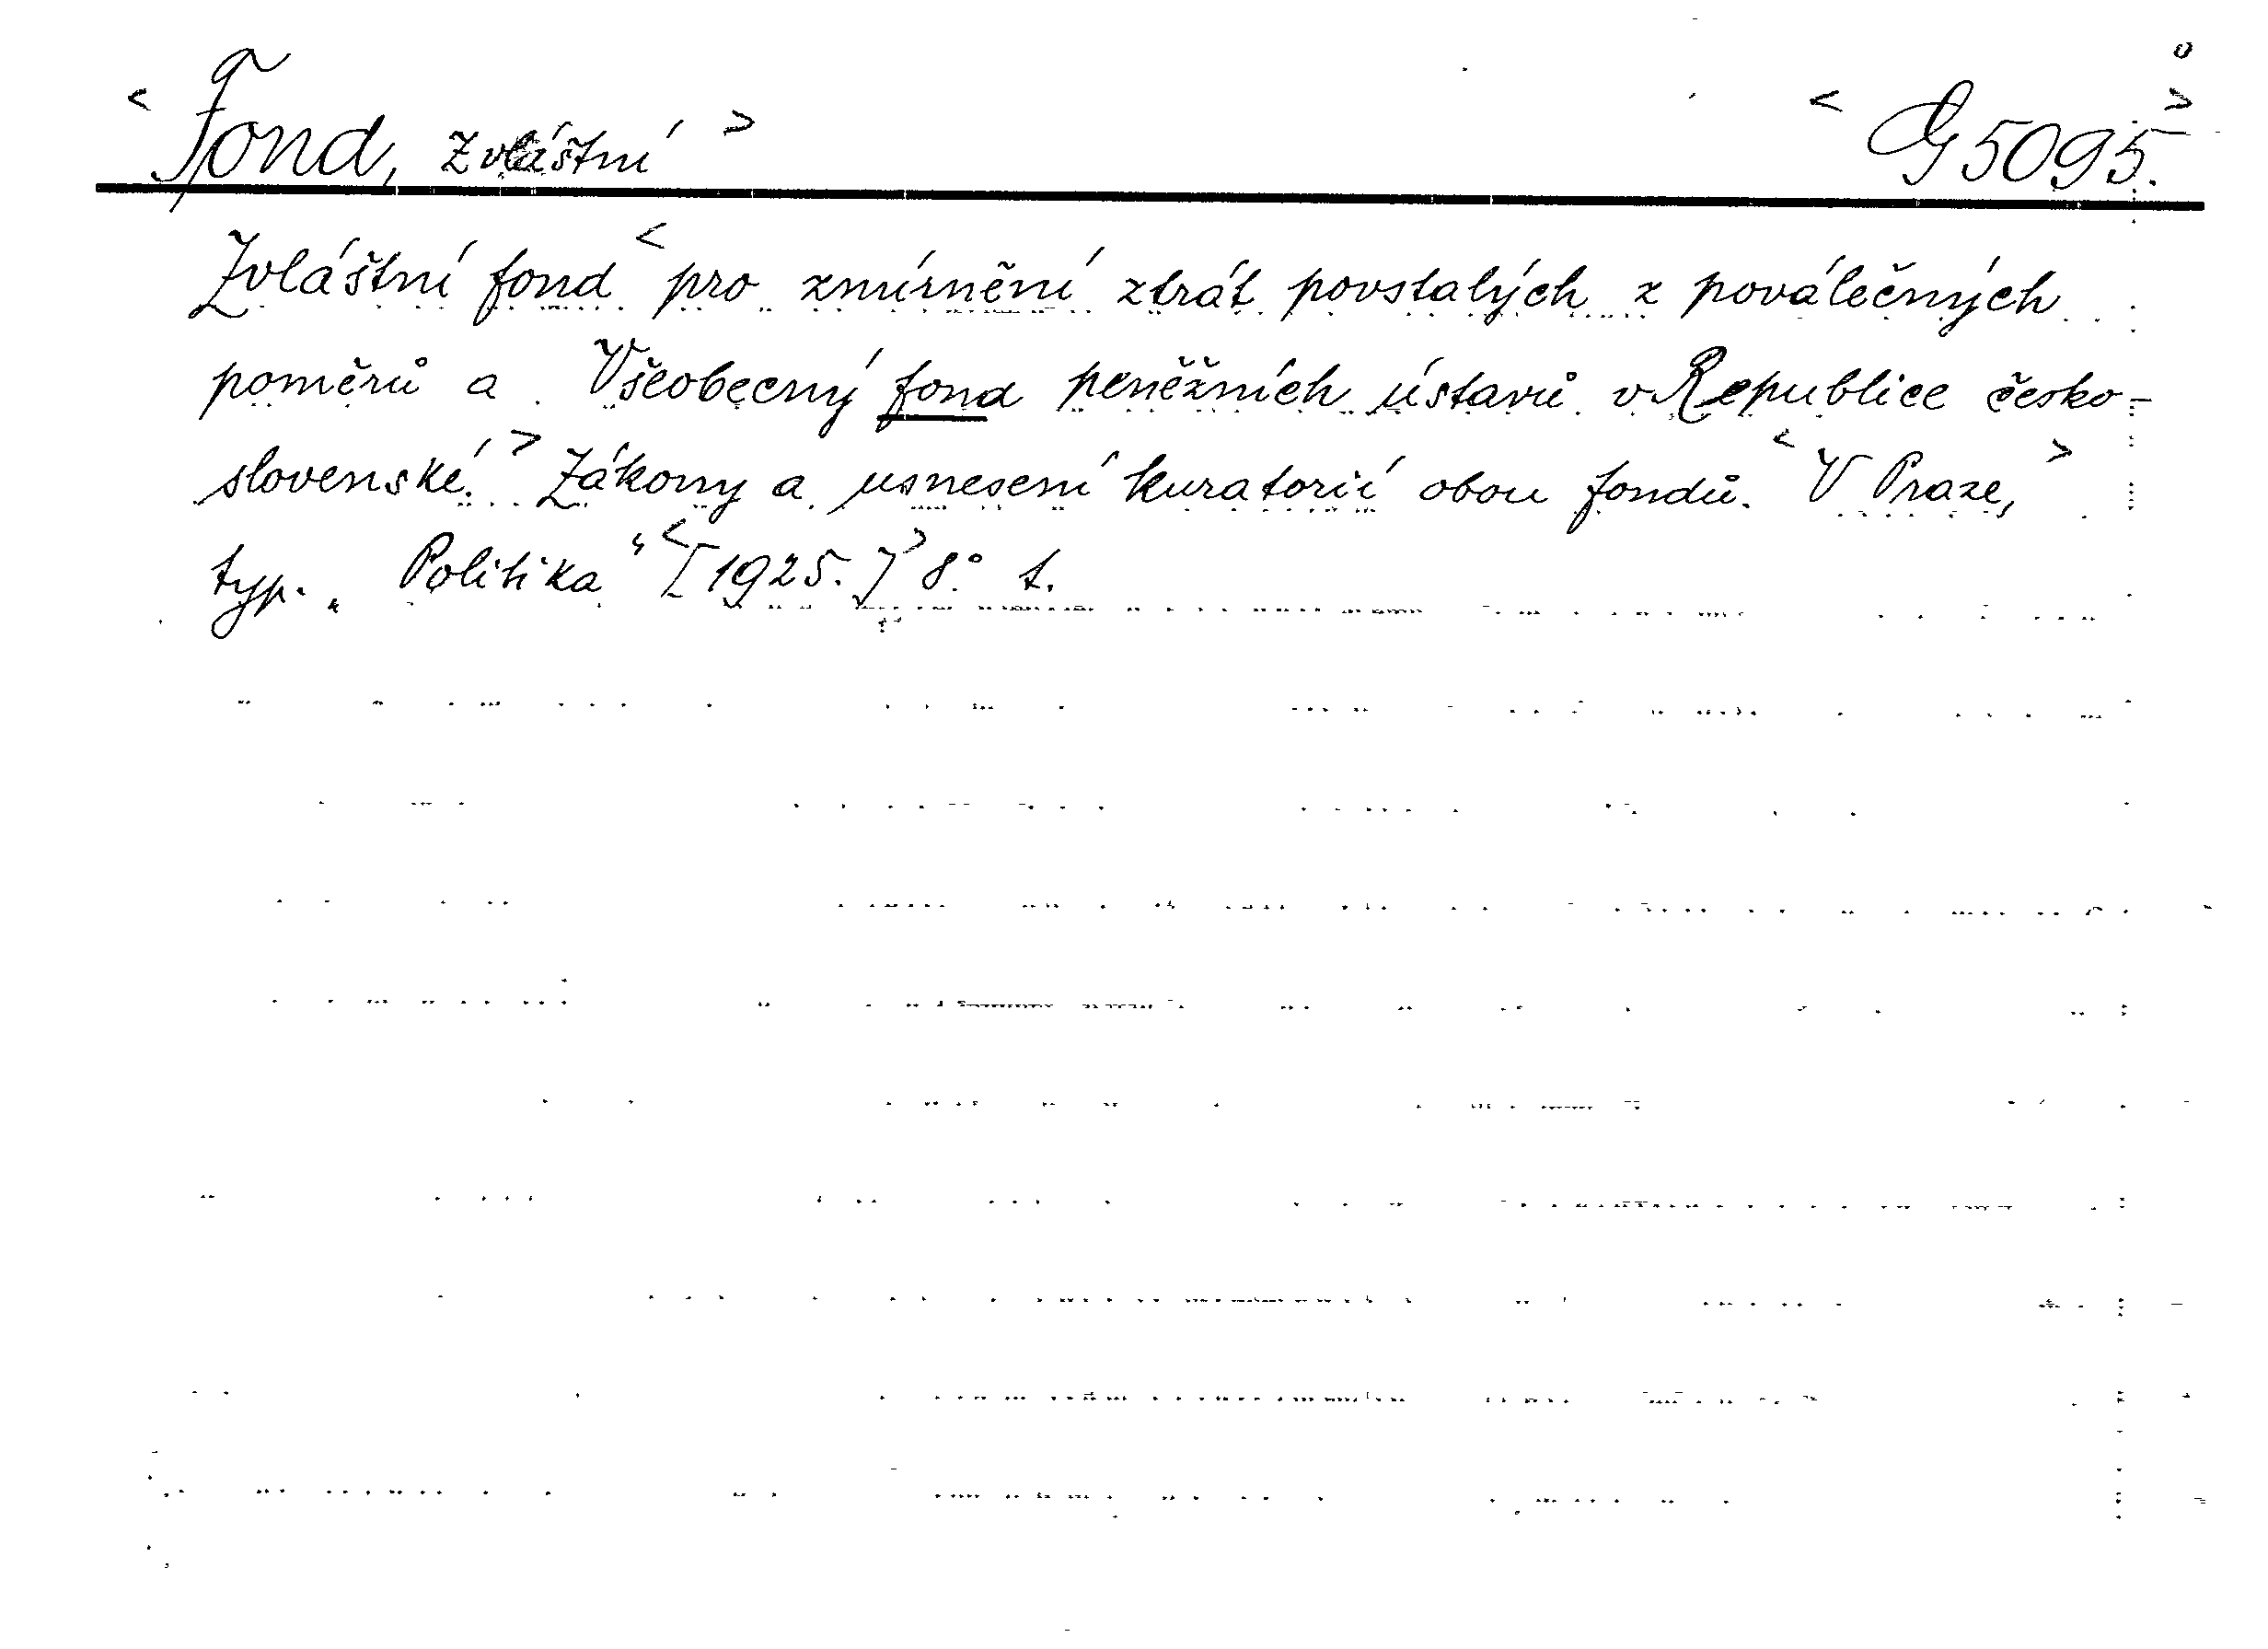 < Fond, zvláštní > < G 5095. >
Zvláštní fond < pro zmírnění ztrát povstalých z poválečných
poměrů a Všeobecný fond peněžních ústavů v Republice česko-
slovenské. > Zákony a usnesení kuratorií obou fondů. < V Praze, >
typ. „Politika“ < [1925.] > 8° t.